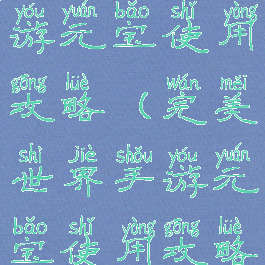 yóu yuán bǎo shǐ yòng
游元宝使用
gōng lüè wán měi
攻略(完美
shì jiè shǒu yóu yuán
世界手游元
bǎo shǐ yòng gōng lüè
宝使用攻略